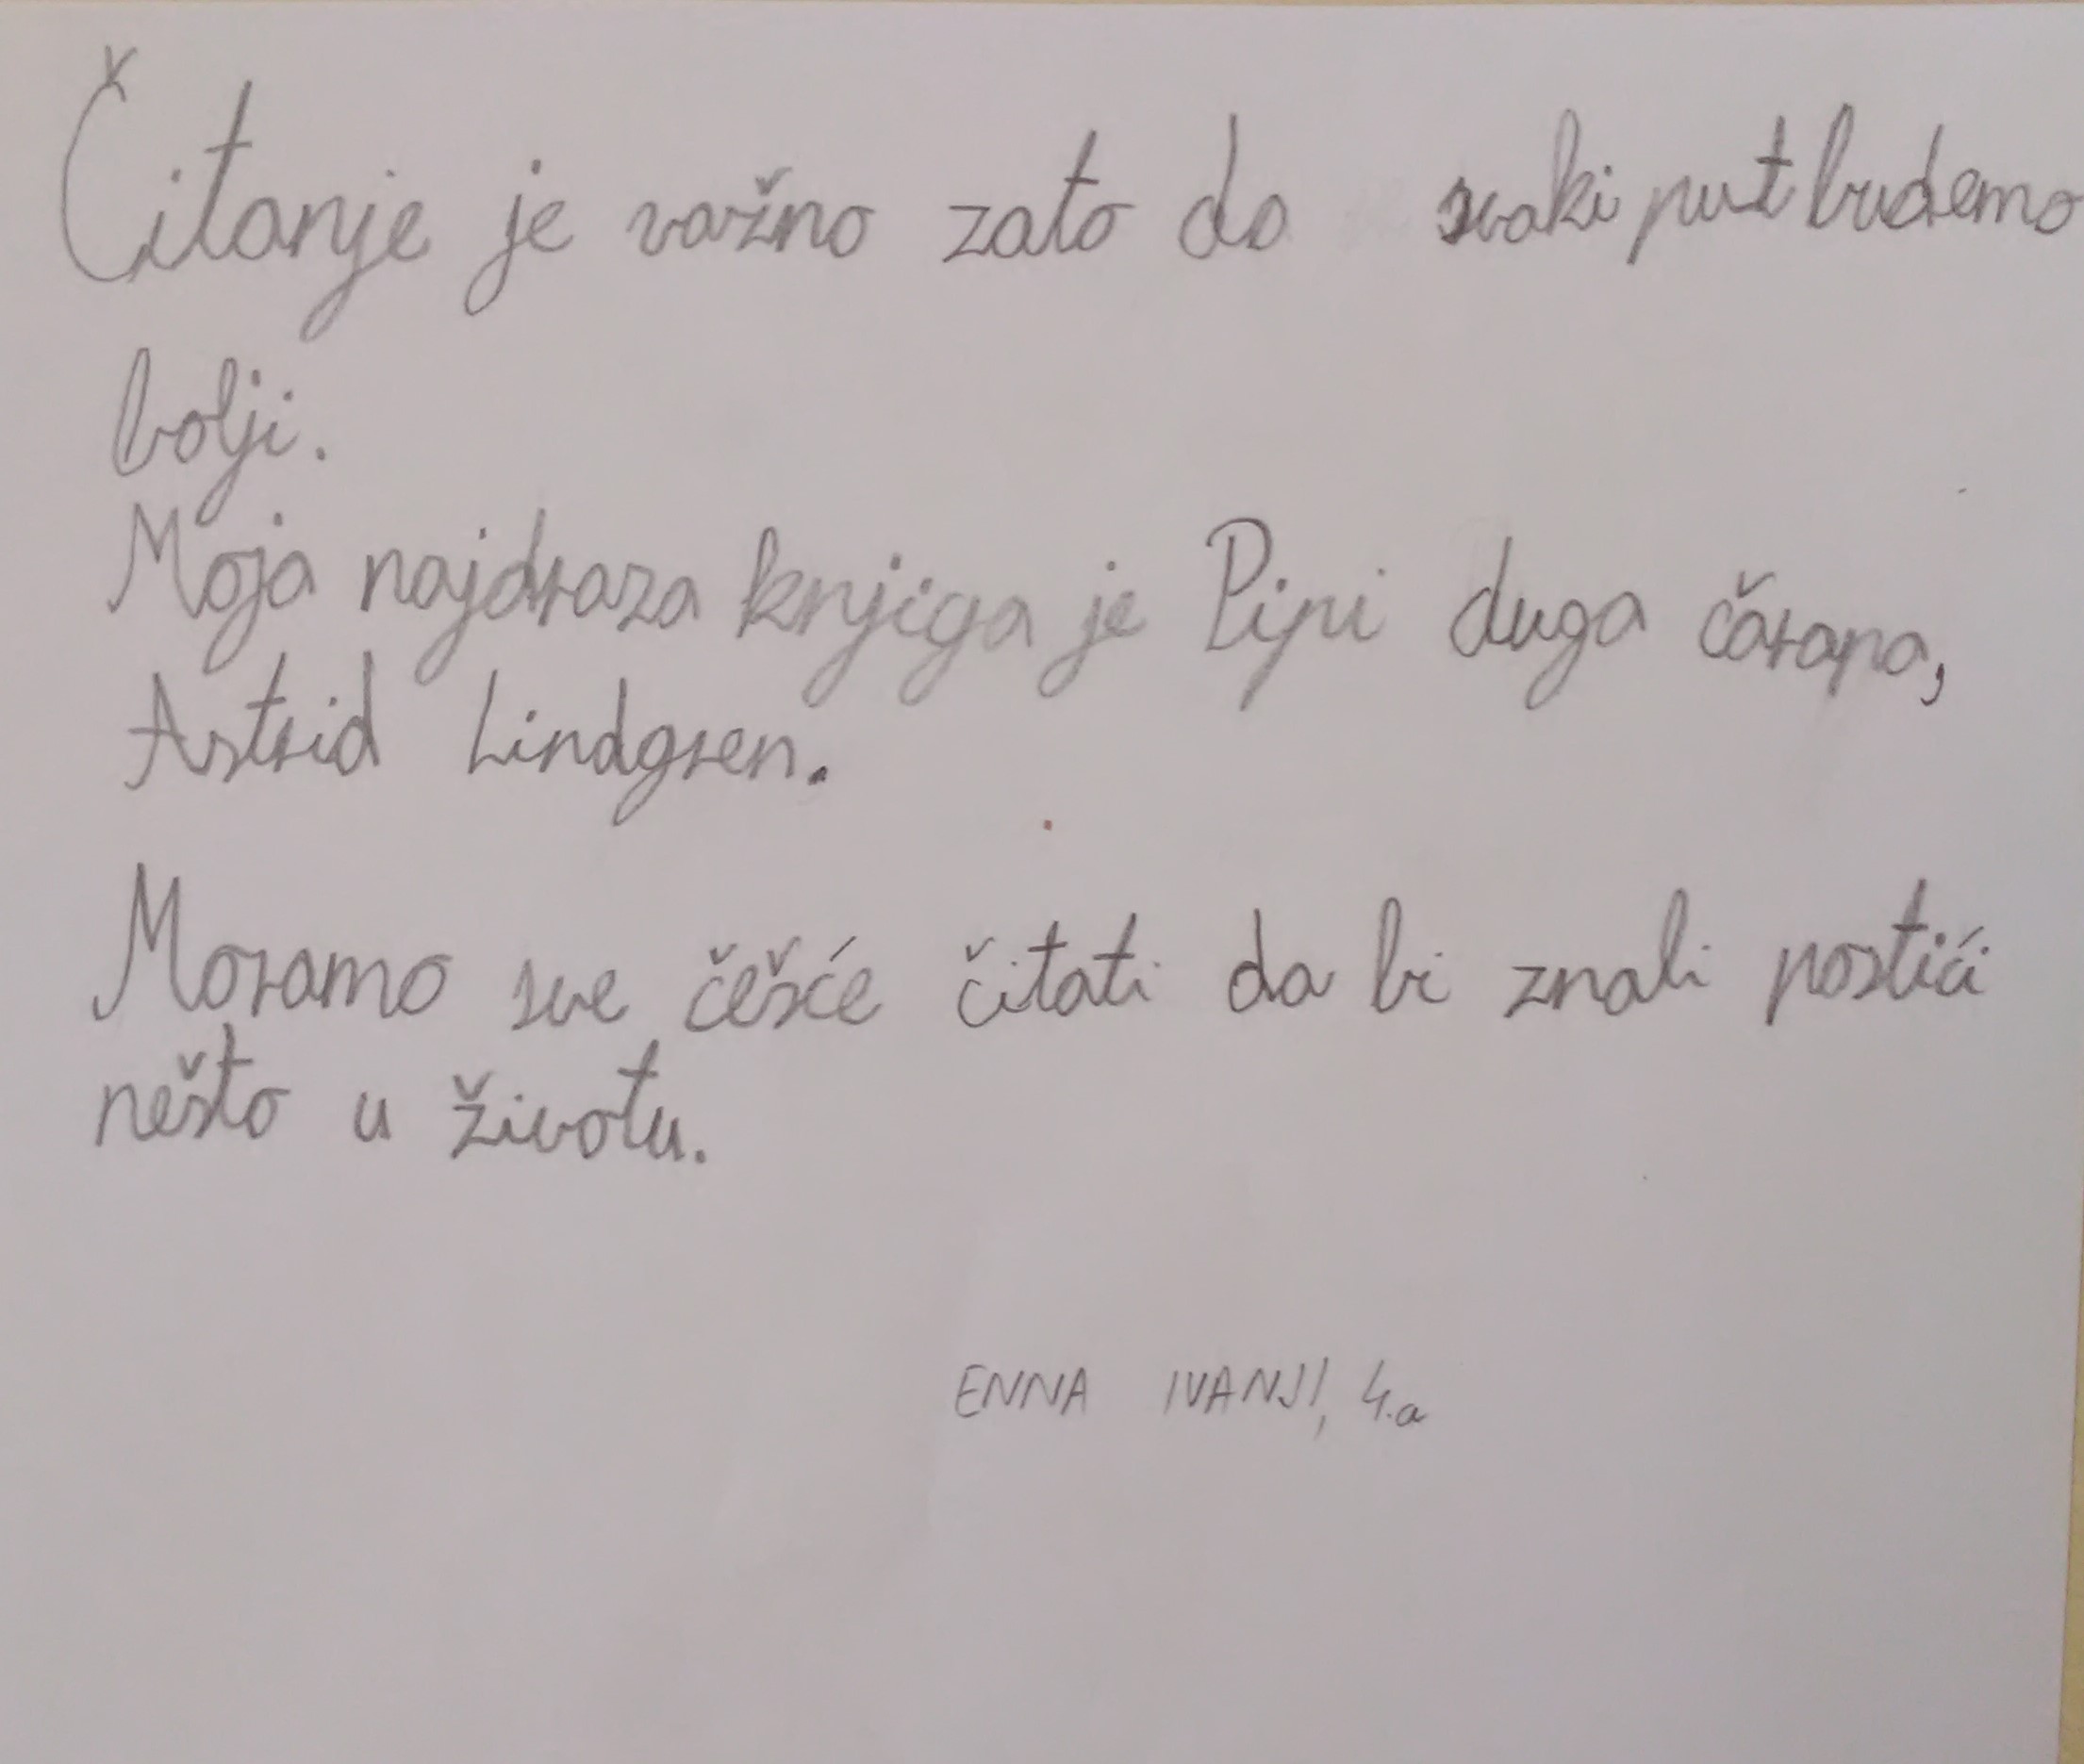 Čitanje je važno zato da svaki put budemo
bolji.
Moja najdraza knjiga je Pipi duga čarapa,
Astrid Lindgren.
Moramo sve češće čitati da bi znali postići
nešto u životu.
ENNA IVANJI, 4.a